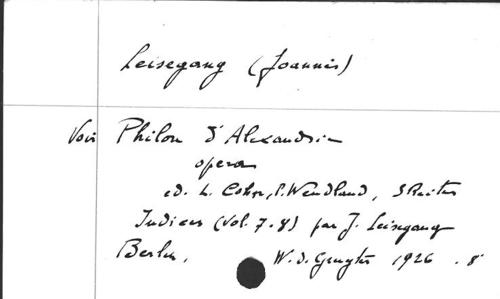 Leisegang (Joannis)
Voir Philon d'Alexandrie
opera
ed. L. Cohn, P. Wendland, S Reiter
Indices (Vol. 7-8) par J. Leisegang
Berlin, W. d. Gruyter 1926 . 8°